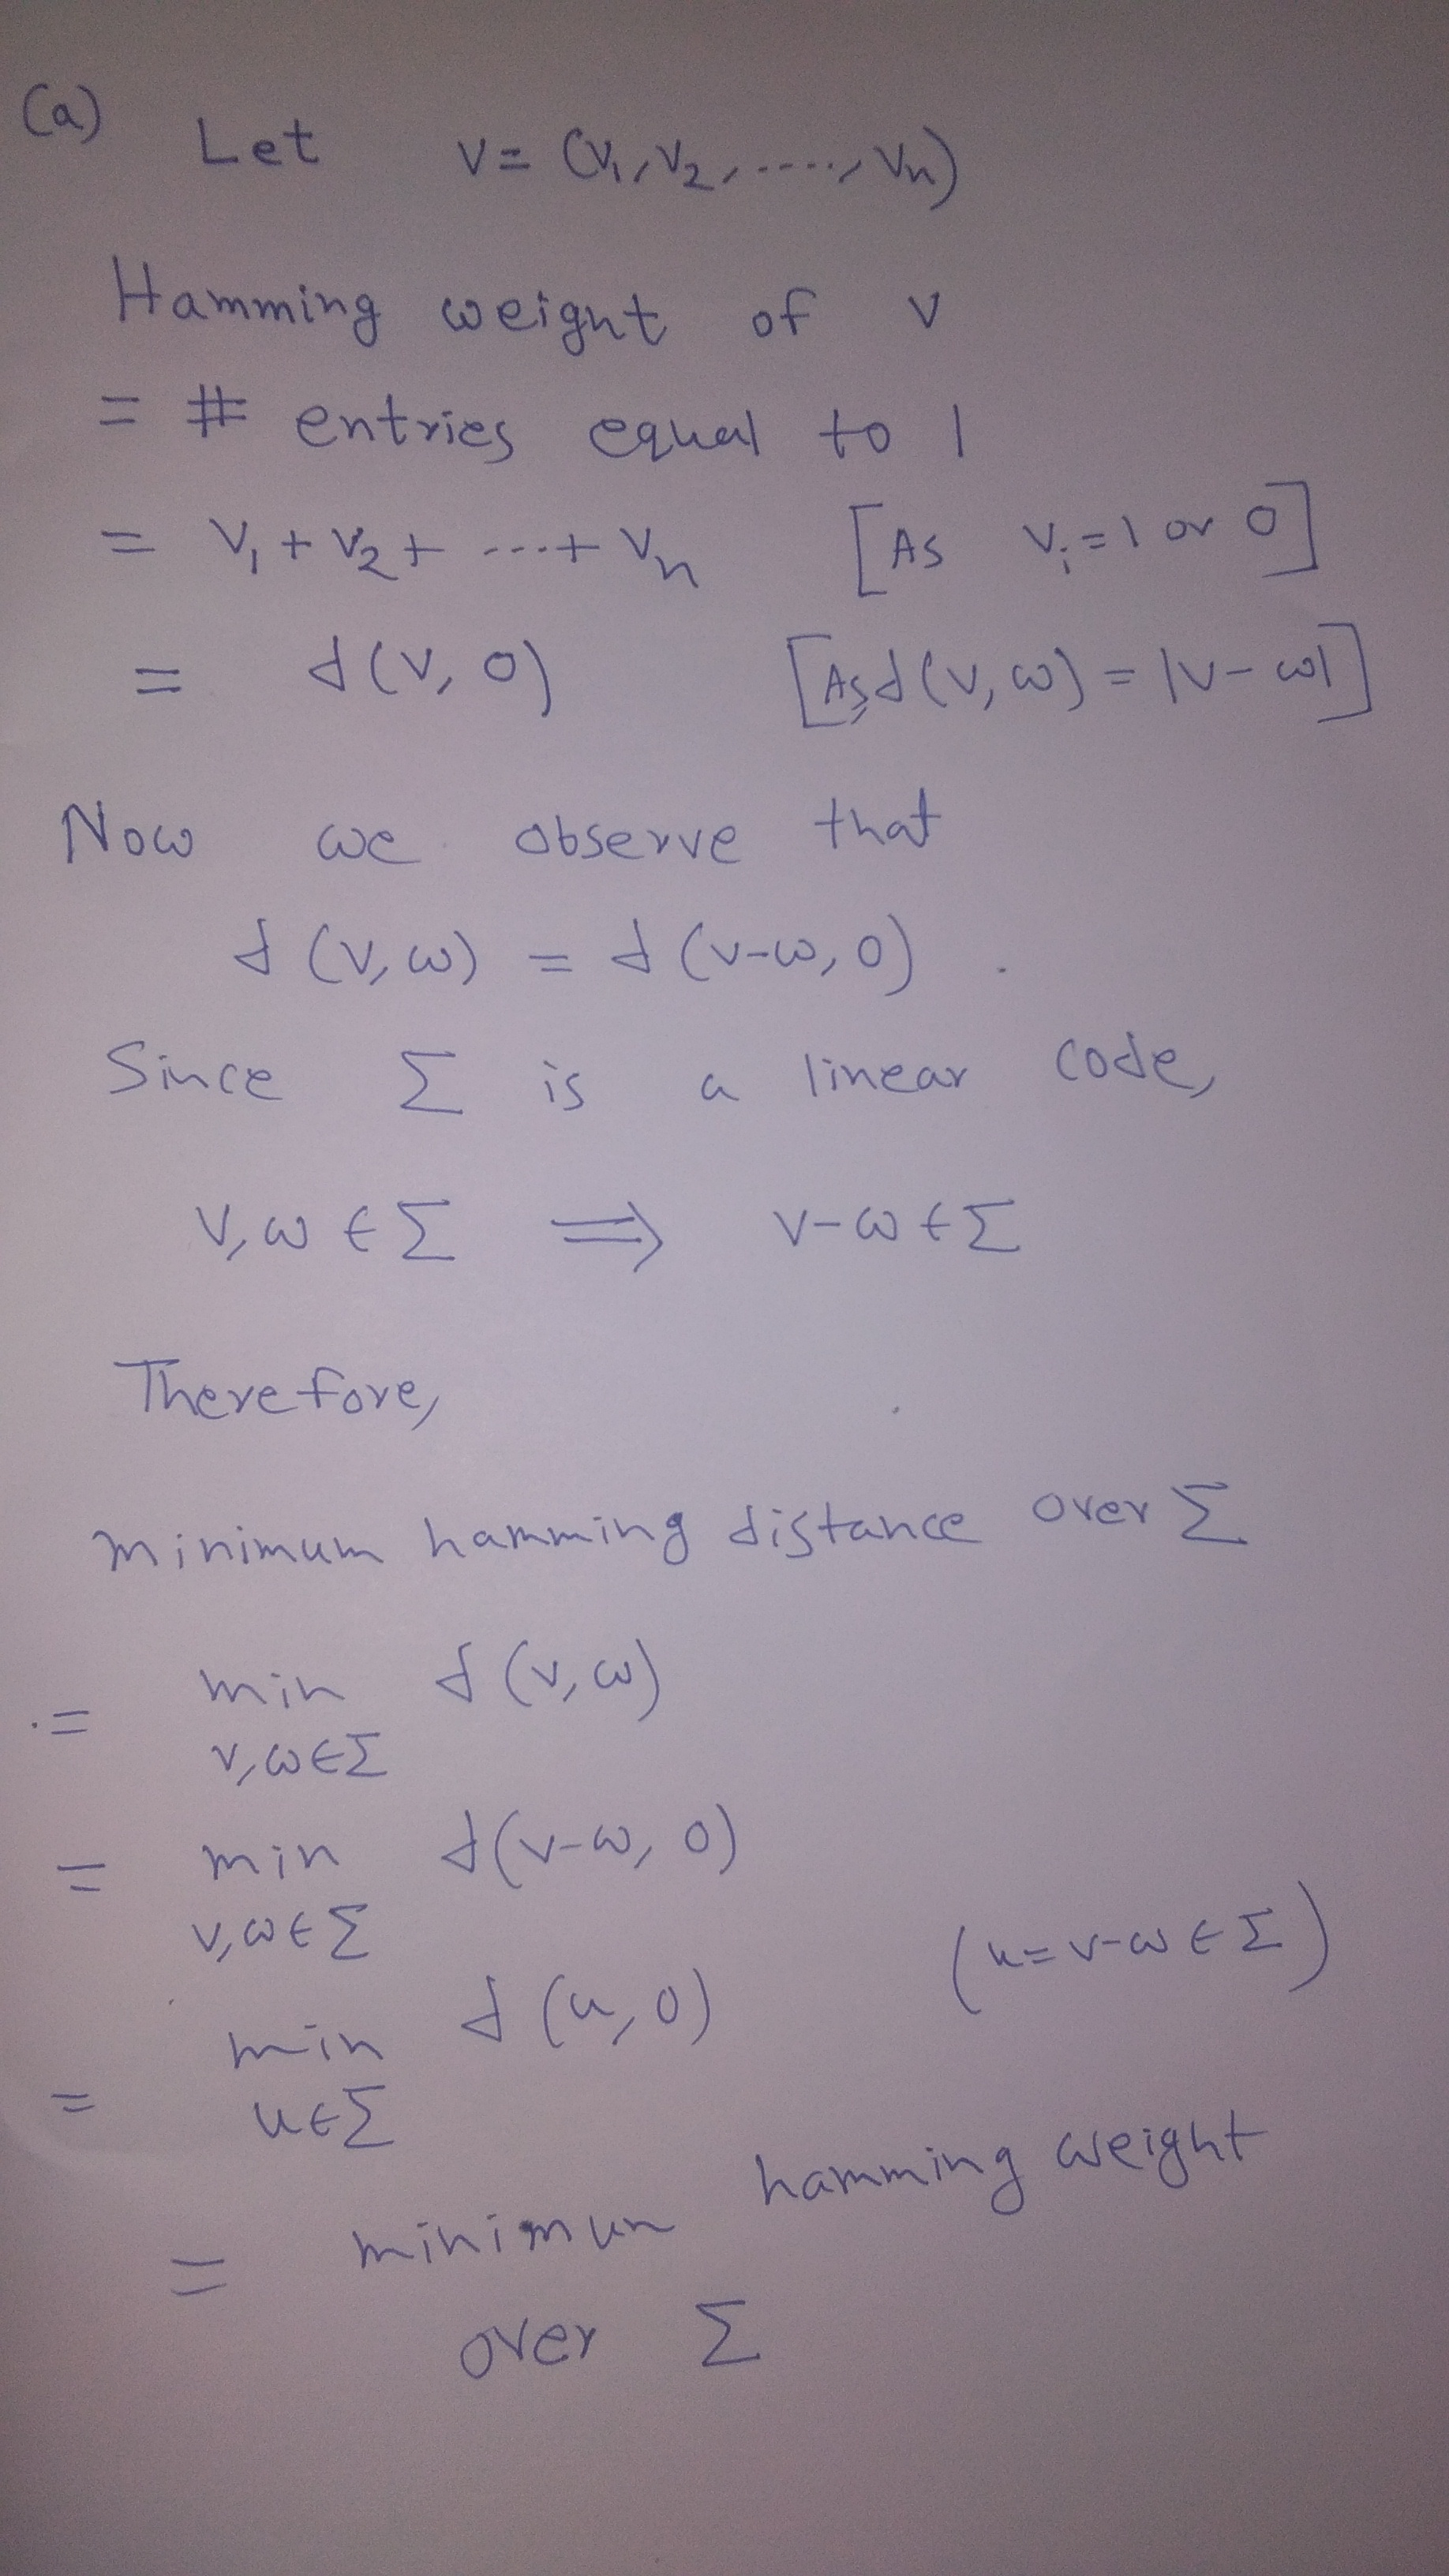 (a) Let v = (v₁, v₂, ....., vₙ)
Hamming weight of v
= # entries equal to 1
= v₁ + v₂ + ... + vₙ [As vᵢ = 1 or 0]
= d(v, 0) [As, d(v, ω) = |v - ω|]
Now we observe that
d(v, ω) = d(v-ω, 0).
Since Σ is a linear code,
v, ω ∈ Σ ⟹ v-ω ∈ Σ
Therefore,
minimum hamming distance over Σ
= min d(v, ω)
v, ω ∈ Σ
= min d(v-ω, 0)
v, ω ∈ Σ
= min d(u, 0) (u = v-ω ∈ Σ)
u ∈ Σ
= minimun hamming weight
over Σ